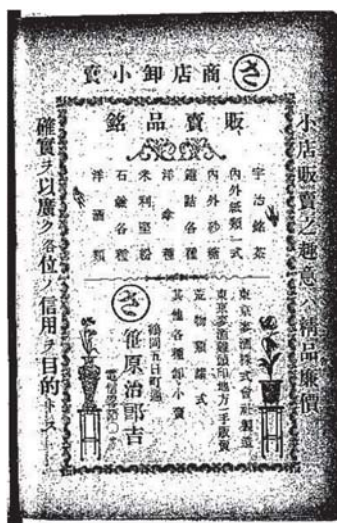 商店卸小賣
小店販賣之趣意ハ精品廉價
販賣品銘
宇治銘茶
內外紙類一式
內外砂糖
鑵詰各種
洋傘種
米利堅粉
石鹼各種
洋酒類
東京麥酒株式會社製造
東京麥酒鶴頭印地方一手販賣
荒物類鎌式
其他各種卸小賣
鶴岡五日町通
笹原治郎吉
確實ヲ以廣ク各位ノ信用ヲ目的トス